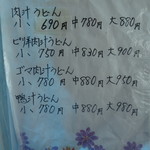 肉汁うどん
小、690円 中780円 大880円
ピリ辛肉汁うどん
小、750円 中830円 大900円
ゴマ肉汁うどん
小、780円 中880円 大950円
鴨汁うどん
小、780円 中880円 大980円